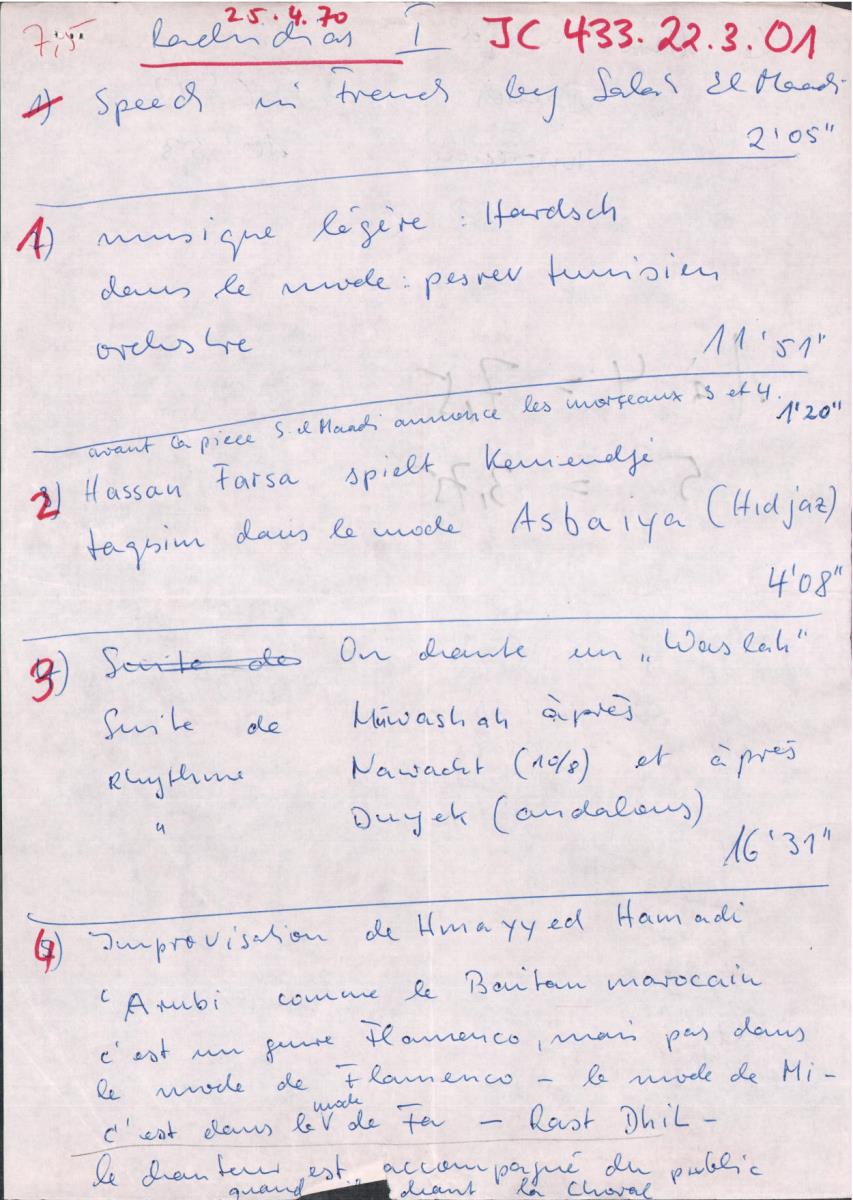 25.4.70
7,5 Rachidia I JC 433.22.3.01
1) Speech in French by Salah El Maadi
2'05"
1) musique légère : Hardsch
dans le mode : pesrev tunisien
orchestre
11'51"
avant la pièce S. el Maadi annonce les morçeaux 3 et 4.
1'20"
2) Hassan Farsa spielt Kemendjé
taqsim dans le mode Asbaiya (Hidjaz)
4'08"
3) Suite de On chante un „Waslah"
Suite de Muwashah àprès
Rhythme Nawacht (10/8) et àprès
" Duyek (andalous)
16'31"
4) Improvisation de Hmayyed Hamadi
'Arubi comme le Baitan marocain
c'est un genre Flamenco, mais pas dans
le mode de Flamenco – le mode de Mi –
c'est dans le mode de Fa – Rast Dhil –
le chanteur est accompagné du public
quand chant la Choral